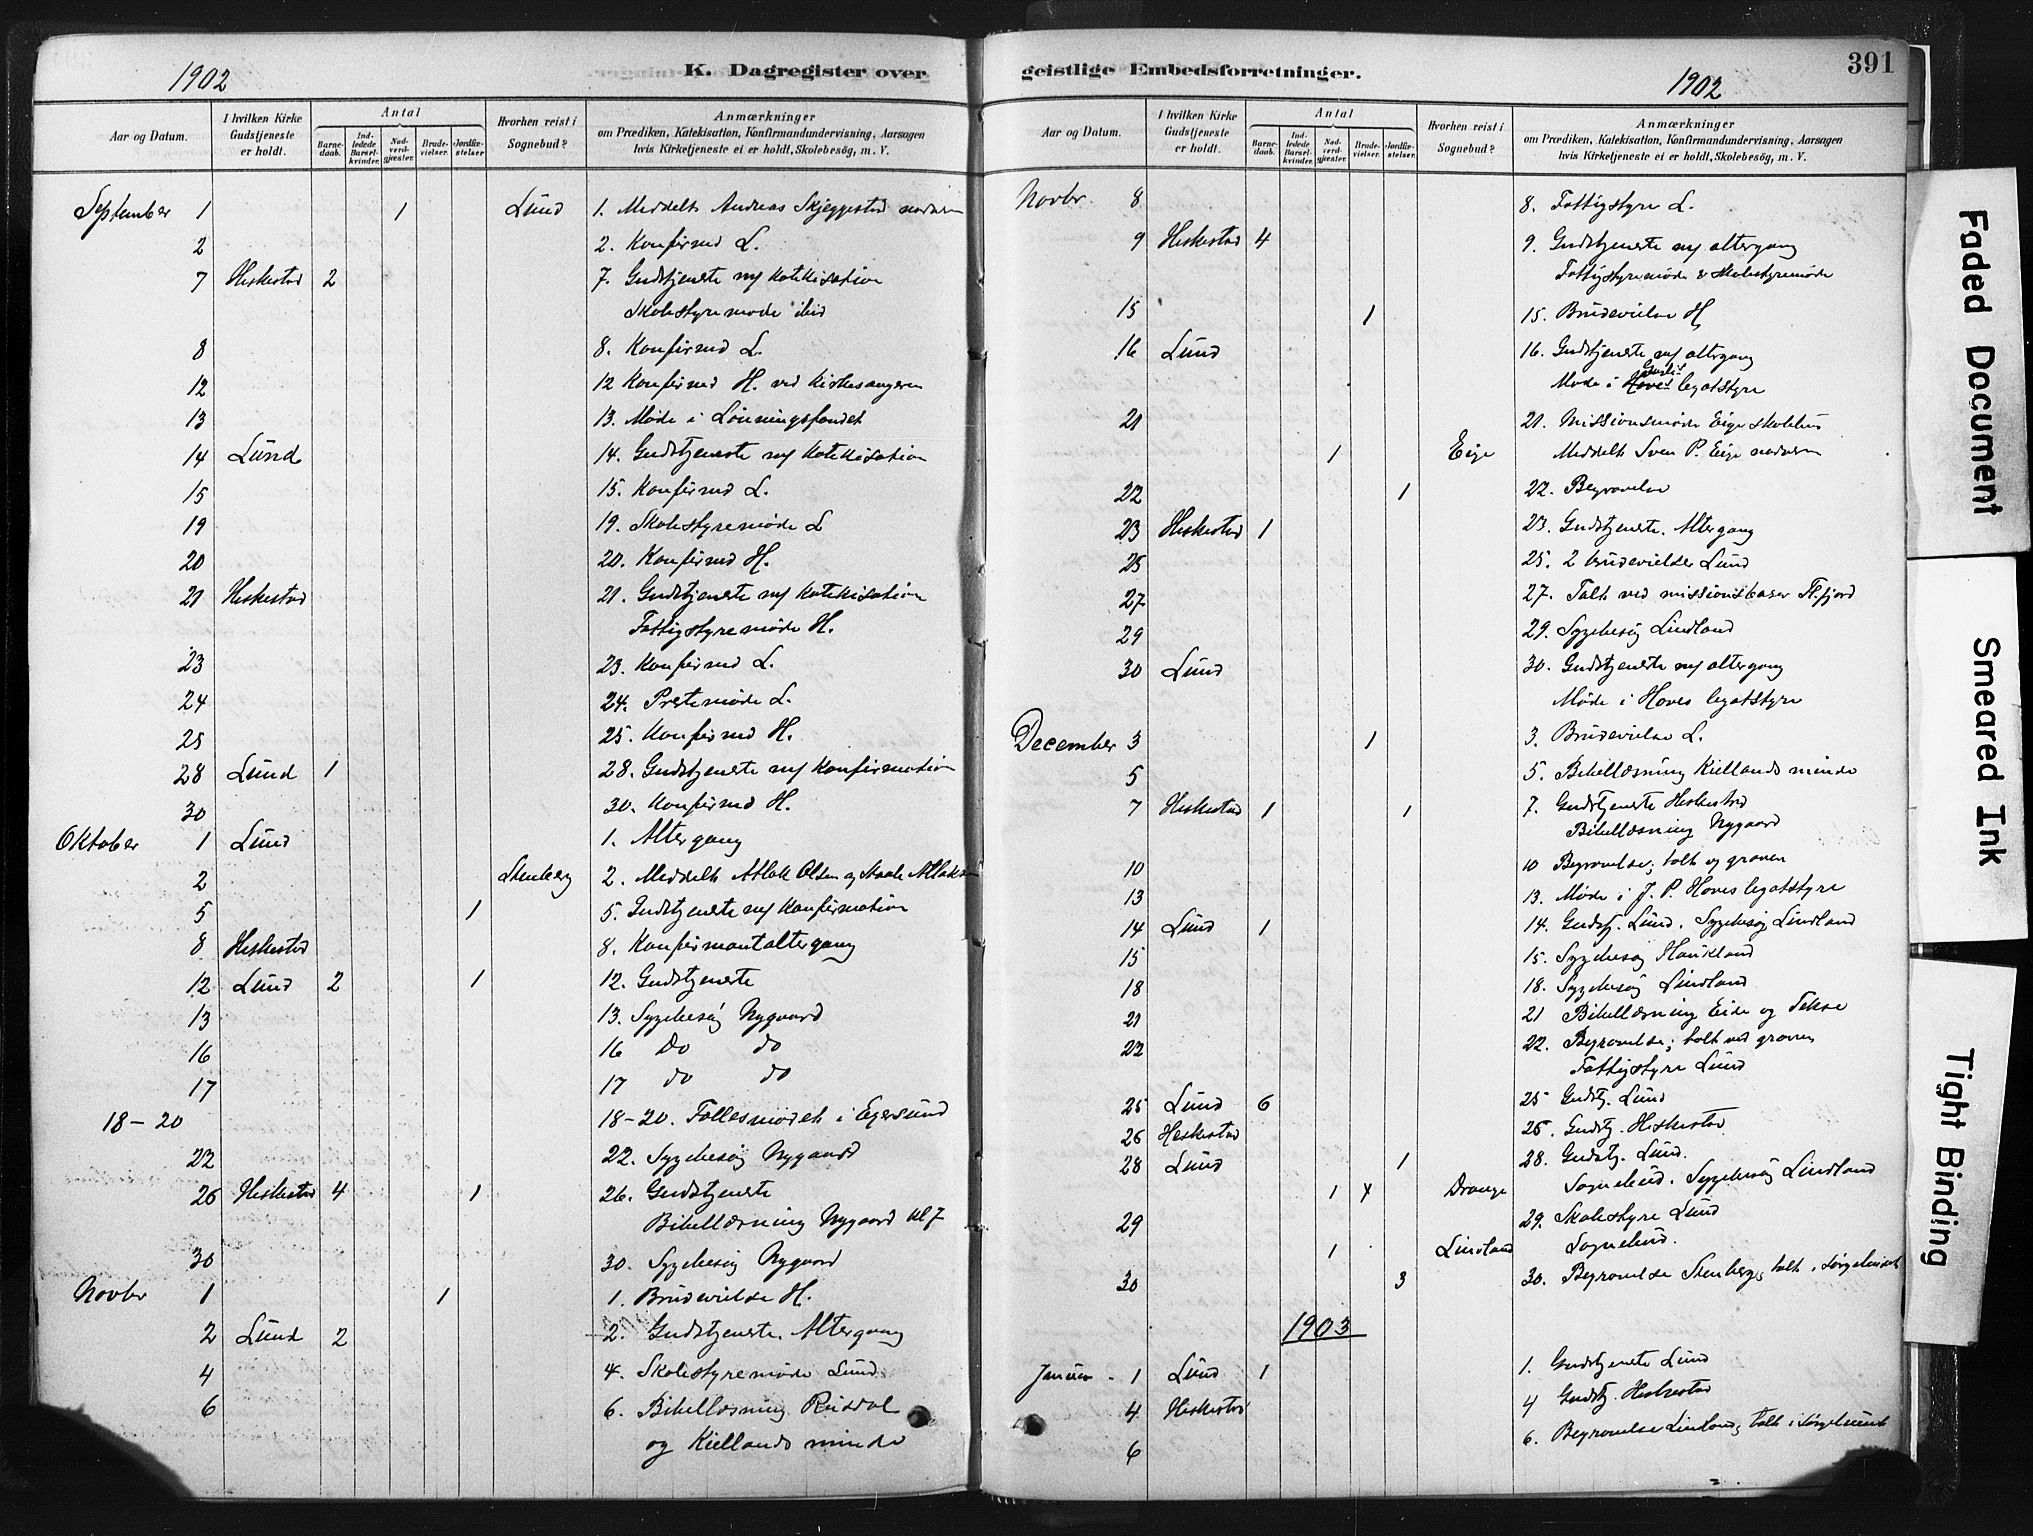 1902
K. Dagregister over
Aar og Datum. I hvilken Kirke Gudstjeneste er holdt. Antal Barnedaab. Indledede Barselkvinder. Nadverdgjæster. Brudevielser. Jordfæstelser. Hvorhen reist i Sognebud? Anmærkninger om Prædiken, Katekisation, Konfirmandundervisning, Aarsagen hvis Kirketjeneste ei er holdt, Skolebesög, m. V.
September 1 1 Lund 1. Meddelt Andreas Skjeggestad nadvern
2 2. Konfirmd L.
7 Heskestad 2 7. Gudstjeneste m/ katekisation
Skolestyremøde ibid
8 8. Konfirmd L.
12 12 Konfirmd H. ved kirkesangeren
13 13. Møde i Lønningsfondet
14 Lund 14. Gudstjeneste m/ katekisation
15 15. Konfirmd L.
19 19. Skolestyremøde L
20 20. Konfirmd H.
21 Heskestad 21. Gudstjeneste m/ katekisation
Fattigstyremøde H.
23 23. Konfirmd L.
24 24. Prestemøde L.
25 25. Konfirmd H.
28 Lund 1 28. Gudstjeneste m/ konfirmation
30 30. Konfirmd H.
Oktober 1 Lund 1. Altergang
2 Stenberg 2. Meddelt Atlak Olsen og
5 1 5. Gudstjeneste m/ konfirmation
8 Heskestad 8. Konfirmantaltergang
12 Lund 2 1 12. Gudstjeneste
13 13. Sygebesøg Nygaard
16 16 Do do
17 17 do do
18-20 18-20. Fællesmødet i Egersund
22 22. Sygebesøg Nygaard
26 Heskestad 4 1 26. Gudstjeneste
Bibellæsning Nygaard kl 7
30 30. Sygebesøg Nygaard
Novbr 1 1 1. Brudevielse H.
2 Lund 2 2. Gudstjeneste. Altergang
4 4. Skolestyremøde Lund
6 6. Bibellæsning Rusdal
og Kiellands minde
geistlige Embedsforretninger.
1902
391
Aar og Datum. I hvilken Kirke Gudstjeneste er holdt. Antal Barnedaab. Indledede Barselkvinder. Nadverdgjæster. Brudevielser. Jordfæstelser. Hvorhen reist i Sognebud? Anmærkninger om Prædiken, Katekisation, Konfirmandundervisning, Aarsagen hvis Kirketjeneste ei er holdt, Skolebesög, m. V.
Novbr. 8 8. Fattigstyre L.
9 Heskestad 4 9. Gudstjeneste m/ altergang
Fattigstyremøde & skolestyremøde
15 1 15. Brudevielse H
16 Lund 16. Gudstjeneste m/ altergang
Møde i Hoves legatstyre
21 21. Missionsmøde Eige skolehus
1 Eige Meddelt Sven P. Eige nadvern
22 1 22. Begravelse
23 Heskestad 1 23. Gudstjeneste. Altergang
25 25. 2 brudevielser Lund
27 27. Talt ved missionsbasar Fl.fjord
29 29. Sygebesøg Lindland
30 Lund 30. Gudstjeneste m/ altergang
Møde i Hoves legatstyre
December 3 1 3. Brudevielse L.
5 5. Bibellæsning Kiellands minde
7 Heskestad 1 1 7. Gudstjeneste Heskestad
Bibellæsning Nygaard
10 10 Begravelse; talt og graven
13 13. Møde i J. P. Hoves legatstyre
14 Lund 1 14. Gudstj. Lund. Sygebesøg Lindland
15 15. Sygebesøg Haukland
18 18. Sygebesøg Lindland
21 21 Bibellæsning Eide og Tekse
22 22. Begravelse; talt ved graven
Fattigstyre Lund
25 Lund 6 25 Gudstj. Lund
26 Heskestad 26. Gudstj. Heskestad
28 Lund 1 28. Gudstj. Lund.
1 Drange Sognebud. Sygebesøg Lindland
29 29. Skolestyre Lund
1 Lindland Sognebud.
30 3 30. Begravelse Stenberg, talt i sørgehuset
1903
Januar 1 Lund 1 1. Gudstjeneste Lund
4 Heskestad 4 Gudstj. Heskestad
6 6. Begravelse Lindland, talt i sørgehuset
Faded Document
Smeared Ink
Tight Binding